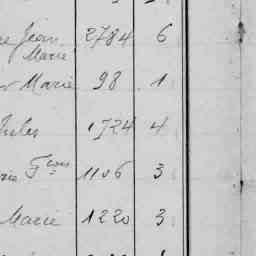 Jean 2784 6
Marie
Marie 98 1
Jules 1724 4
Fçois 1106 3
Marie 1220 3